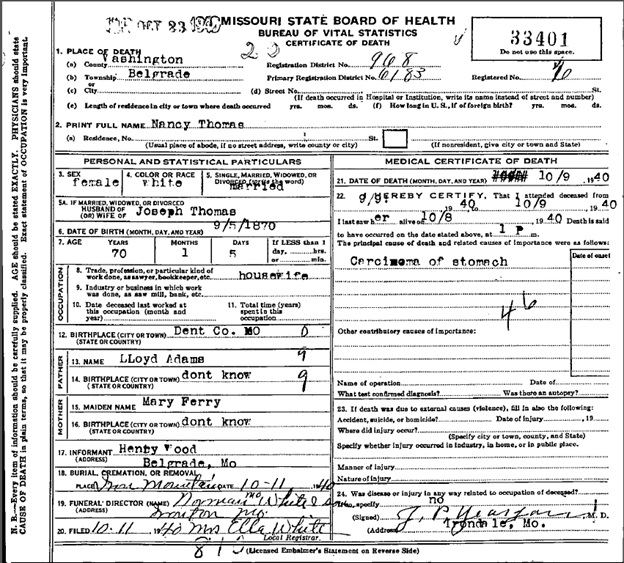 OCT 23 1940
MISSOURI STATE BOARD OF HEALTH
BUREAU OF VITAL STATISTICS
CERTIFICATE OF DEATH
33401
Do not use this space.
1. PLACE OF DEATH
(a) County Washington
Registration District No. 968
(b) Township Belgrade
Primary Registration District No. 6183
Registered No.
(c) City
(d) Street No. St.
(If death occurred in Hospital or Institution, write its name instead of street and number)
(e) Length of residence in city or town where death occurred yrs. mos. ds. (f) How long in U. S., if of foreign birth? yrs. mos. ds.
2. PRINT FULL NAME Nancy Thomas
(a) Residence, No. St.
(Usual place of abode, if no street address, write county or city)
(If nonresident, give city or town and State)
PERSONAL AND STATISTICAL PARTICULARS
3. SEX female
4. COLOR OR RACE white
5. SINGLE, MARRIED, WIDOWED, OR DIVORCED (write the word) married
5A. IF MARRIED, WIDOWED, OR DIVORCED
HUSBAND OF (OR) WIFE OF Joseph Thomas
6. DATE OF BIRTH (MONTH, DAY, AND YEAR) 9/5/1870
7. AGE YEARS MONTHS DAYS If LESS than 1
70 1 5 day, hrs. or min.
OCCUPATION
8. Trade, profession, or particular kind of work done, as sawyer, bookkeeper, etc. housewife
9. Industry or business in which work was done, as saw mill, bank, etc.
10. Date deceased last worked at this occupation (month and year)
11. Total time (years) spent in this occupation
12. BIRTHPLACE (CITY OR TOWN) Dent Co. MO
(STATE OR COUNTRY)
FATHER
13. NAME LLoyd Adams
14. BIRTHPLACE (CITY OR TOWN) dont know
(STATE OR COUNTRY)
MOTHER
15. MAIDEN NAME Mary Ferry
16. BIRTHPLACE (CITY OR TOWN) dont know
(STATE OR COUNTRY)
17. INFORMANT Henry Wood
(ADDRESS) Belgrade, Mo
18. BURIAL, CREMATION, OR REMOVAL
PLACE DATE 10-11 1940
19. FUNERAL DIRECTOR Norman White
(ADDRESS) Ironton Mo.
20. FILED 10-11 1940 Mrs Ella White
Local Registrar.
MEDICAL CERTIFICATE OF DEATH
21. DATE OF DEATH (MONTH, DAY, AND YEAR) 10/9 1940
22. I HEREBY CERTIFY, That I attended deceased from
1940, to 10/9, 1940
I last saw her alive on 10/8, 1940 Death is said
to have occurred on the date stated above, at 1 P m.
The principal cause of death and related causes of importance were as follows:
Date of onset
Carcinoma of stomach
46
Other contributory causes of importance:
Name of operation Date of
What test confirmed diagnosis? Was there an autopsy?
23. If death was due to external causes (violence), fill in also the following:
Accident, suicide, or homicide? Date of injury , 19
Where did injury occur?
(Specify city or town, county, and State)
Specify whether injury occurred in industry, in home, or in public place.
Manner of injury
Nature of injury
24. Was disease or injury in any way related to occupation of deceased?
If so, specify no
(Signed) M. D.
(Address) Irondale, Mo.
(Licensed Embalmer's Statement on Reverse Side)
N. B.—Every item of information should be carefully supplied. AGE should be stated EXACTLY. PHYSICIANS should state
CAUSE OF DEATH in plain terms, so that it may be properly classified. Exact statement of OCCUPATION is very important.